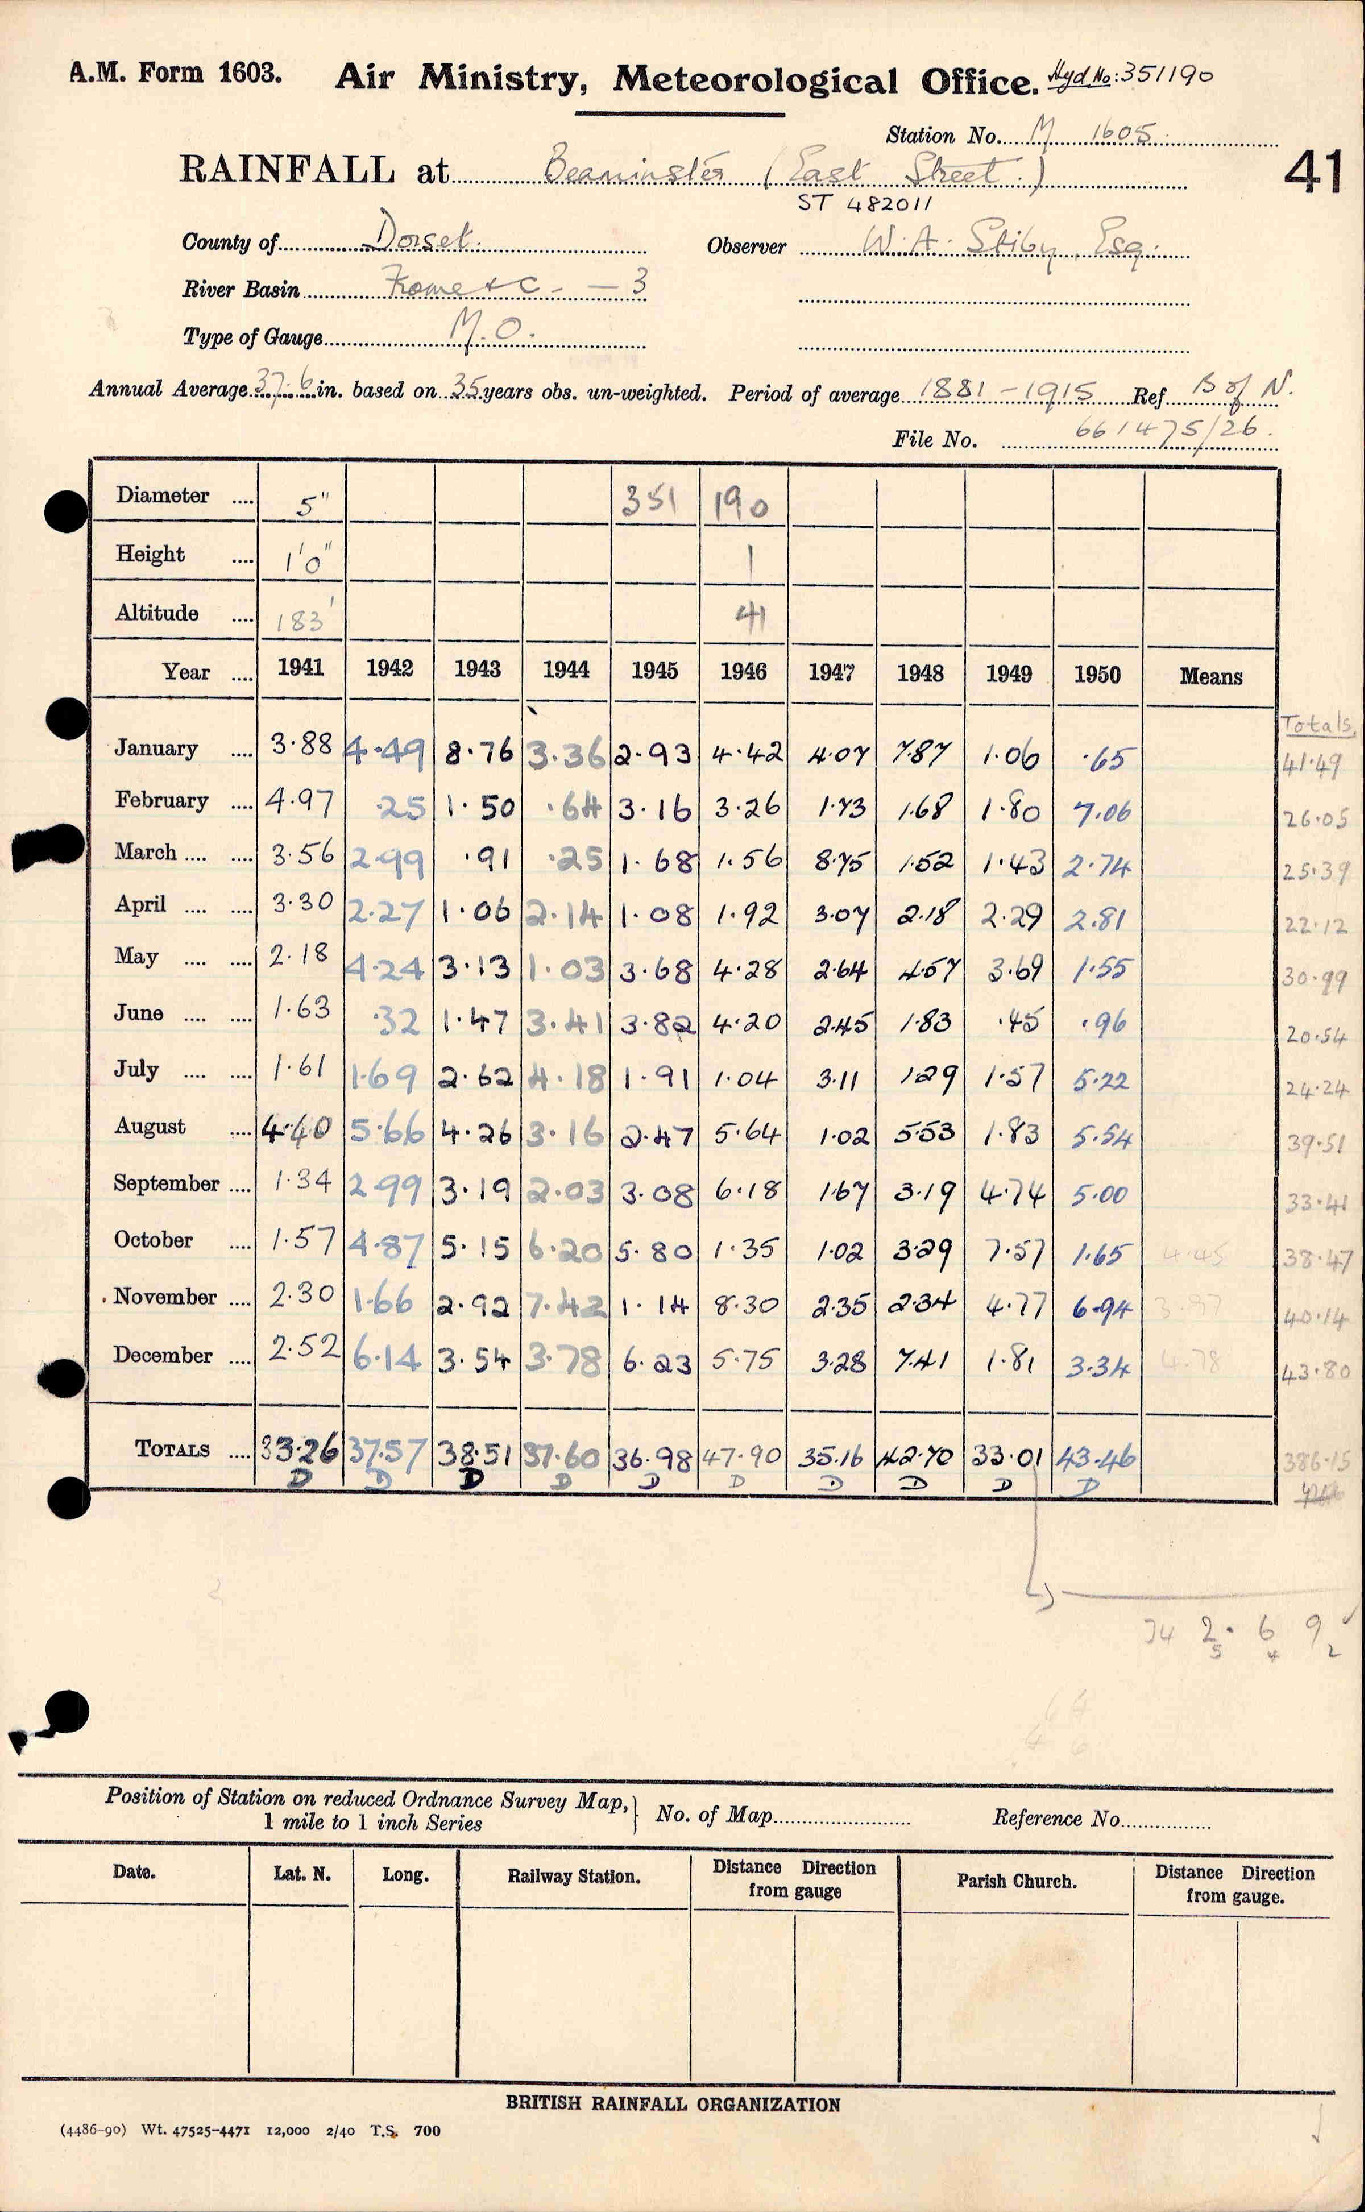 A.M. Form 1603. Air Ministry, Meteorological Office. Hyd. No: 351190
Station No. M 1605
RAINFALL at Beaminster (East Street.) 41
ST 482011
County of Dorset. Observer W. A. Stiby, Esq.
River Basin Frome &c. — 3
Type of Gauge M.O.
Annual Average 37.6 in. based on 35 years obs. un-weighted. Period of average 1881-1915 Ref B of N.
File No. 661475/26.
Diameter .... 5" 351 190
Height .... 1'0" 1
Altitude .... 183' 41
Year .... 1941 1942 1943 1944 1945 1946 1947 1948 1949 1950 Means
Totals
January .... 3.88 4.49 8.76 3.36 2.93 4.42 4.07 7.87 1.06 .65 41.49
February .... 4.97 .25 1.50 .64 3.16 3.26 1.73 1.68 1.80 7.06 26.05
March .... .... 3.56 2.99 .91 .25 1.68 1.56 8.75 1.52 1.43 2.74 25.39
April .... .... 3.30 2.27 1.06 2.14 1.08 1.92 3.07 2.18 2.29 2.81 22.12
May .... .... 2.18 4.24 3.13 1.03 3.68 4.28 2.64 4.57 3.69 1.55 30.99
June .... .... 1.63 .32 1.47 3.41 3.82 4.20 2.45 1.83 .45 .96 20.54
July .... .... 1.61 1.69 2.62 4.18 1.91 1.04 3.11 1.29 1.57 5.22 24.24
August .... 4.40 5.66 4.26 3.16 2.47 5.64 1.02 5.53 1.83 5.54 39.51
September .... 1.34 2.99 3.19 2.03 3.08 6.18 1.67 3.19 4.74 5.00 33.41
October .... 1.57 4.87 5.15 6.20 5.80 1.35 1.02 3.29 7.57 1.65 4.45 38.47
November .... 2.30 1.66 2.92 7.42 1.14 8.30 2.35 2.34 4.77 6.94 3.97 40.14
December .... 2.52 6.14 3.54 3.78 6.23 5.75 3.28 7.41 1.81 3.34 4.78 43.80
TOTALS .... 33.26 37.57 38.51 37.60 36.98 47.90 35.16 42.70 33.01 43.46 386.15
D D D D D D D D D D
34 2. 6 9
5 4 2
Position of Station on reduced Ordnance Survey Map, 1 mile to 1 inch Series } No. of Map.......... Reference No..........
Date. Lat. N. Long. Railway Station. Distance Direction from gauge Parish Church. Distance Direction from gauge.
BRITISH RAINFALL ORGANIZATION
(4486-90) Wt. 47525-4471 12,000 2/40 T.S. 700